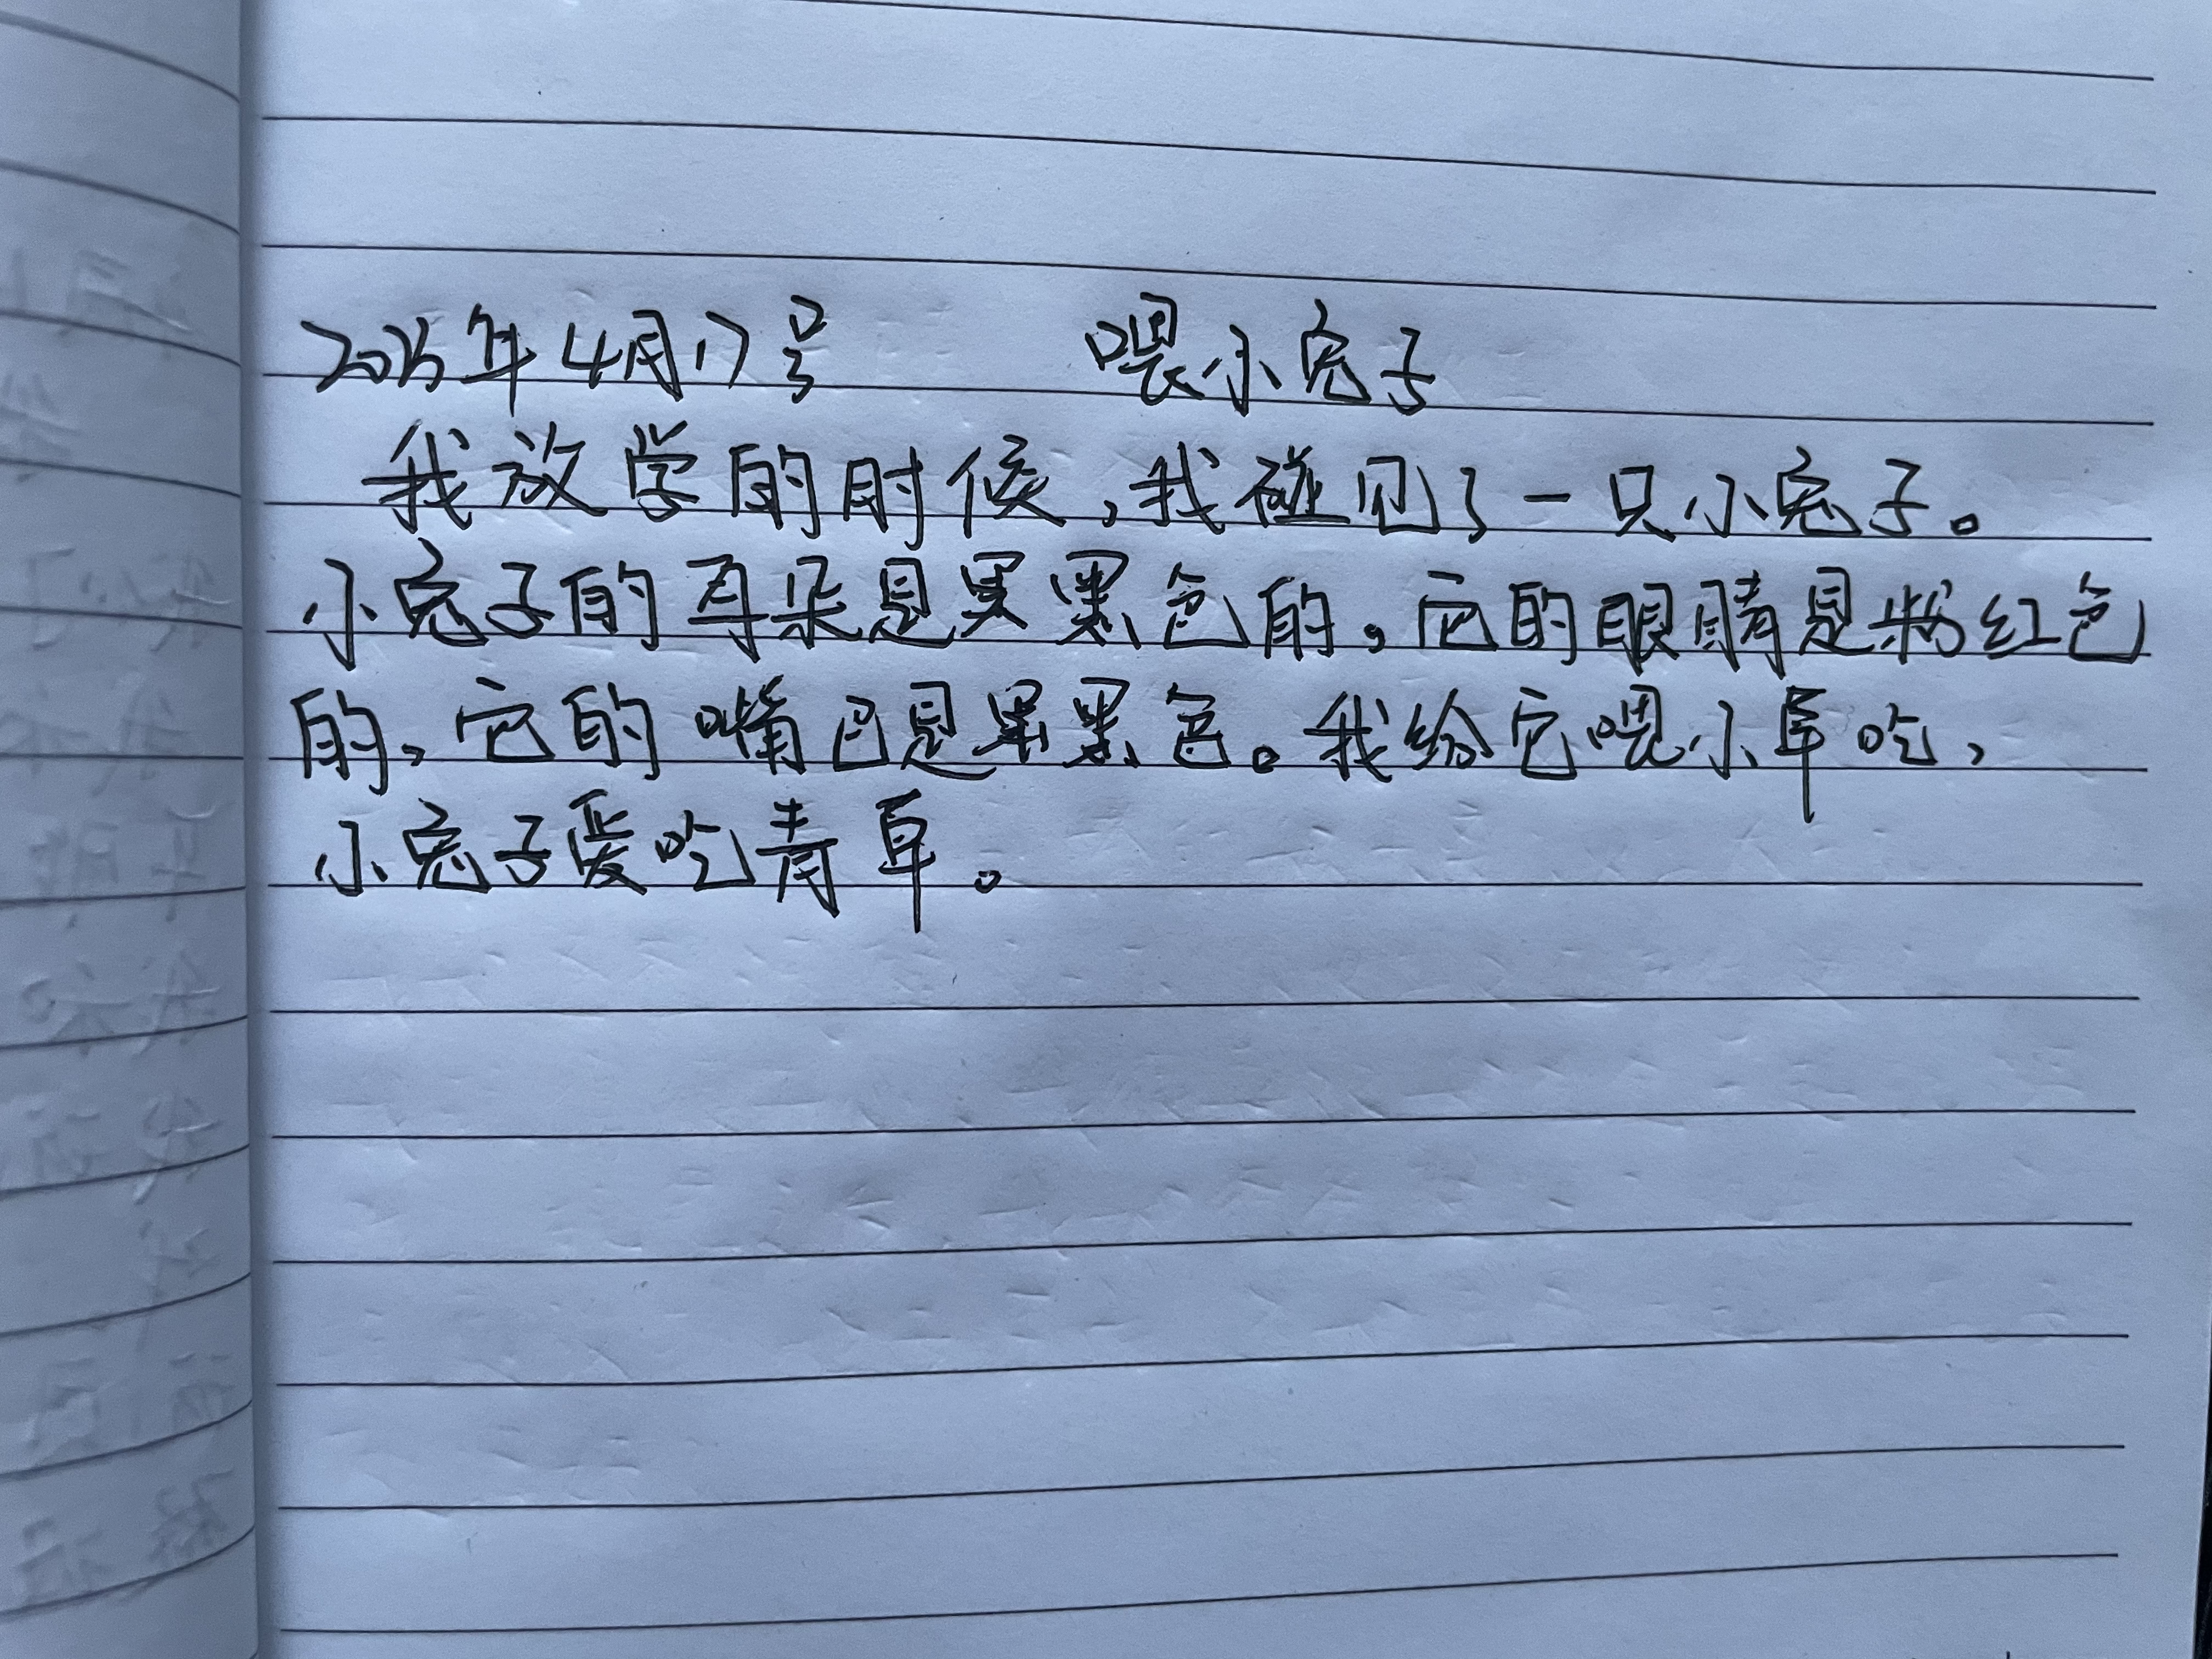 2025年4月17号 喂小兔子
我放学的时候，我碰见了一只小兔子。
小兔子的耳朵是黑黑色的，它的眼睛是粉红色
的，它的嘴巴是黑黑色。我给它喂小草吃，
小兔子爱吃青草。